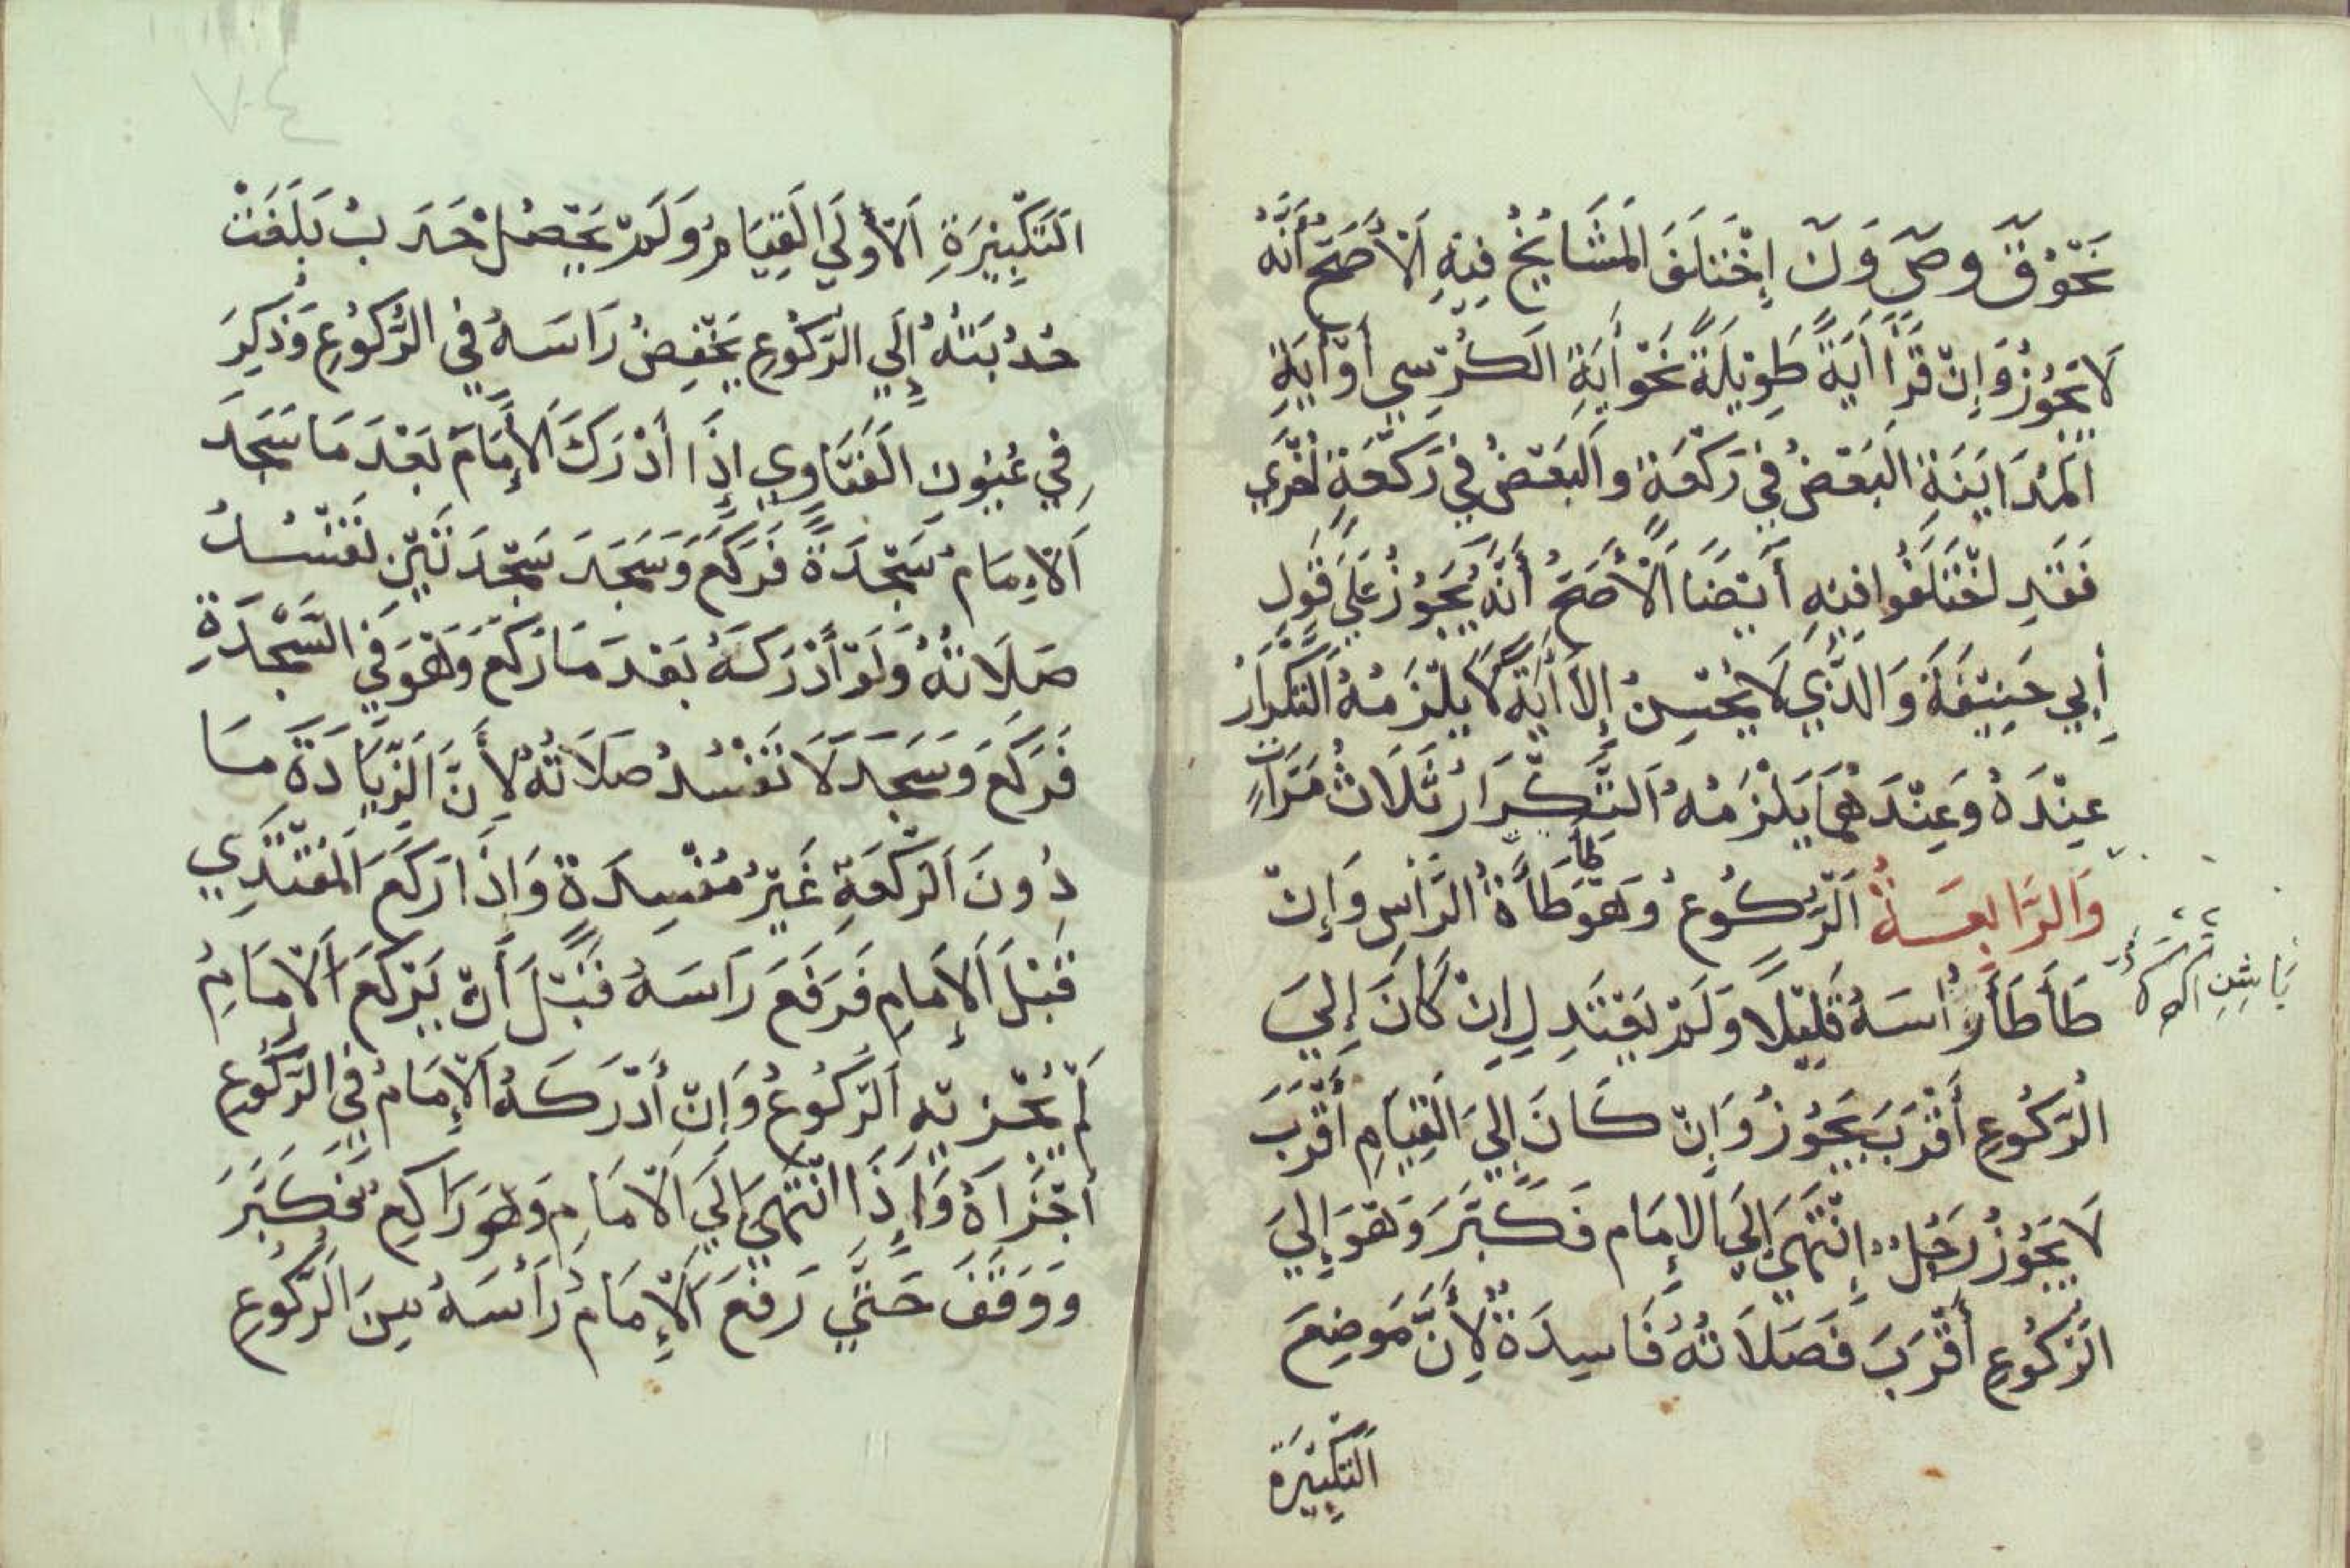 نَحْوُ قٓ وصٓ وَنٓ إِخْتَلَفَ الْمَشَايِخُ فِيهِ اَلْأَصَحُّ أَنَّهُ
لَا يَجُوزُ وَإِنْ قَرَأَ أَيَةً طَوِيْلَةً نَحْوَ أَيَةِ الكُرْسِي أَوْ أَيَةِ
الْمُدَايَنَةِ اَلْبَعْضُ فِي رَكْعَةٍ وَالْبَعْضُ فِي رَكْعَةٍ اُخْرَي
فَقَدِ اخْتَلَفُوا فِيْهِ أَيْضًا اَلْأَصَحُّ أَنَّهُ يَجُوزُ عَلَيَ قَوْلِ
أَبِي حَنِيْفَةَ وَالَّذِي لَا يُحْسِنُ إِلَّا أَيَةً لَا يَلْزَمُهُ التَّكْرَارُ
عِنْدَهُ وَعِنْدَهُمَا يَلْزَمُهُ اَلتَّكْرَارُ ثَلَاثُ مَرَّاتٍ
وَالرَّابِعَةُ اَلرُّكُوعُ وَهُوَ طَأْطَأَةُ الرَّأْسِ وَإِنْ
طَأَطَأَ رَاْسَهُ قَلِيْلًا وَلَمْ يَعْتَدِلِ إِنْ كَانَ إِلَيَ
الرُّكُوعِ أَقْرَبَ يَجُوْزُ وَإِنْ كَانَ إِلَيَ الْقِيَامِ أَقْرَبَ
لَا يَجُوْزُ رَجُلٌ إِنْتَهَيَ إِلَيَ الإِمَامِ فَكَبَّرَ وَهُوَ إِلَيَ
الرُّكُوعِ أَقْرَبَ فَصَلَاتُهُ فَاسِدَةٌ لِأَنَّ مَوْضِعَ
اَلتَّكْبِيْرَةِ
اَلتَّكْبِيْرَةِ اَلْأُولَي اَلْقِيَامُ وَلَمْ يَحْصُلْ حَدَبٌ بَلَغَتْ
حُدُبَتُهُ إِلَي الرُّكُوعِ يَخْفِضُ رَاسَهُ فِي الرُّكُوعِ وَذُكِرَ
فِي عُيُونِ الْفَتَاوِي إِذَا أَدْرَكَ الْإِمَامَ بَعْدَ مَا سَجَدَ
اَلْإِمَامُ سَجْدَةً فَرَكَعَ وَسَجَدَ سَجْدَتَيْنِ تَفْسُدُ
صَلَاتُهُ وَلَوْ أَدْرَكَهُ بَعْدَ مَا رَكَعَ وَهُوَ فِي السَّجْدَةِ
فَرَكَعَ وَسَجَدَ لَا تَفْسُدُ صَلَاتُهُ لِأَنَّ الزِّيَادَةَ مَا
دُونَ الرَّكْعَةِ غَيْرُ مُفْسِدَةٍ وَإِذَا رَكَعَ الْمُقْتَدِي
قَبْلَ الْإِمَامِ فَرَفَعَ رَاسَهُ قَبْلَ أَنْ يَرْكَعَ الْإِمَامُ
لَمْ يُجْزِيْهِ الرُّكُوعُ وَإِنْ أَدْرَكَهُ الْإِمَامُ فِي الرُّكُوعِ
أَجْزَاَهُ وَإِذَا انْتَهَيَ إِلَيَ الْإِمَامِ وَهُوَ رَاكِعٌ فَكَبَّرَ
وَوَقَفَ حَتَّي رَفَعَ الْإِمَامُ رَأْسَهُ مِنَ الرُّكُوعِ